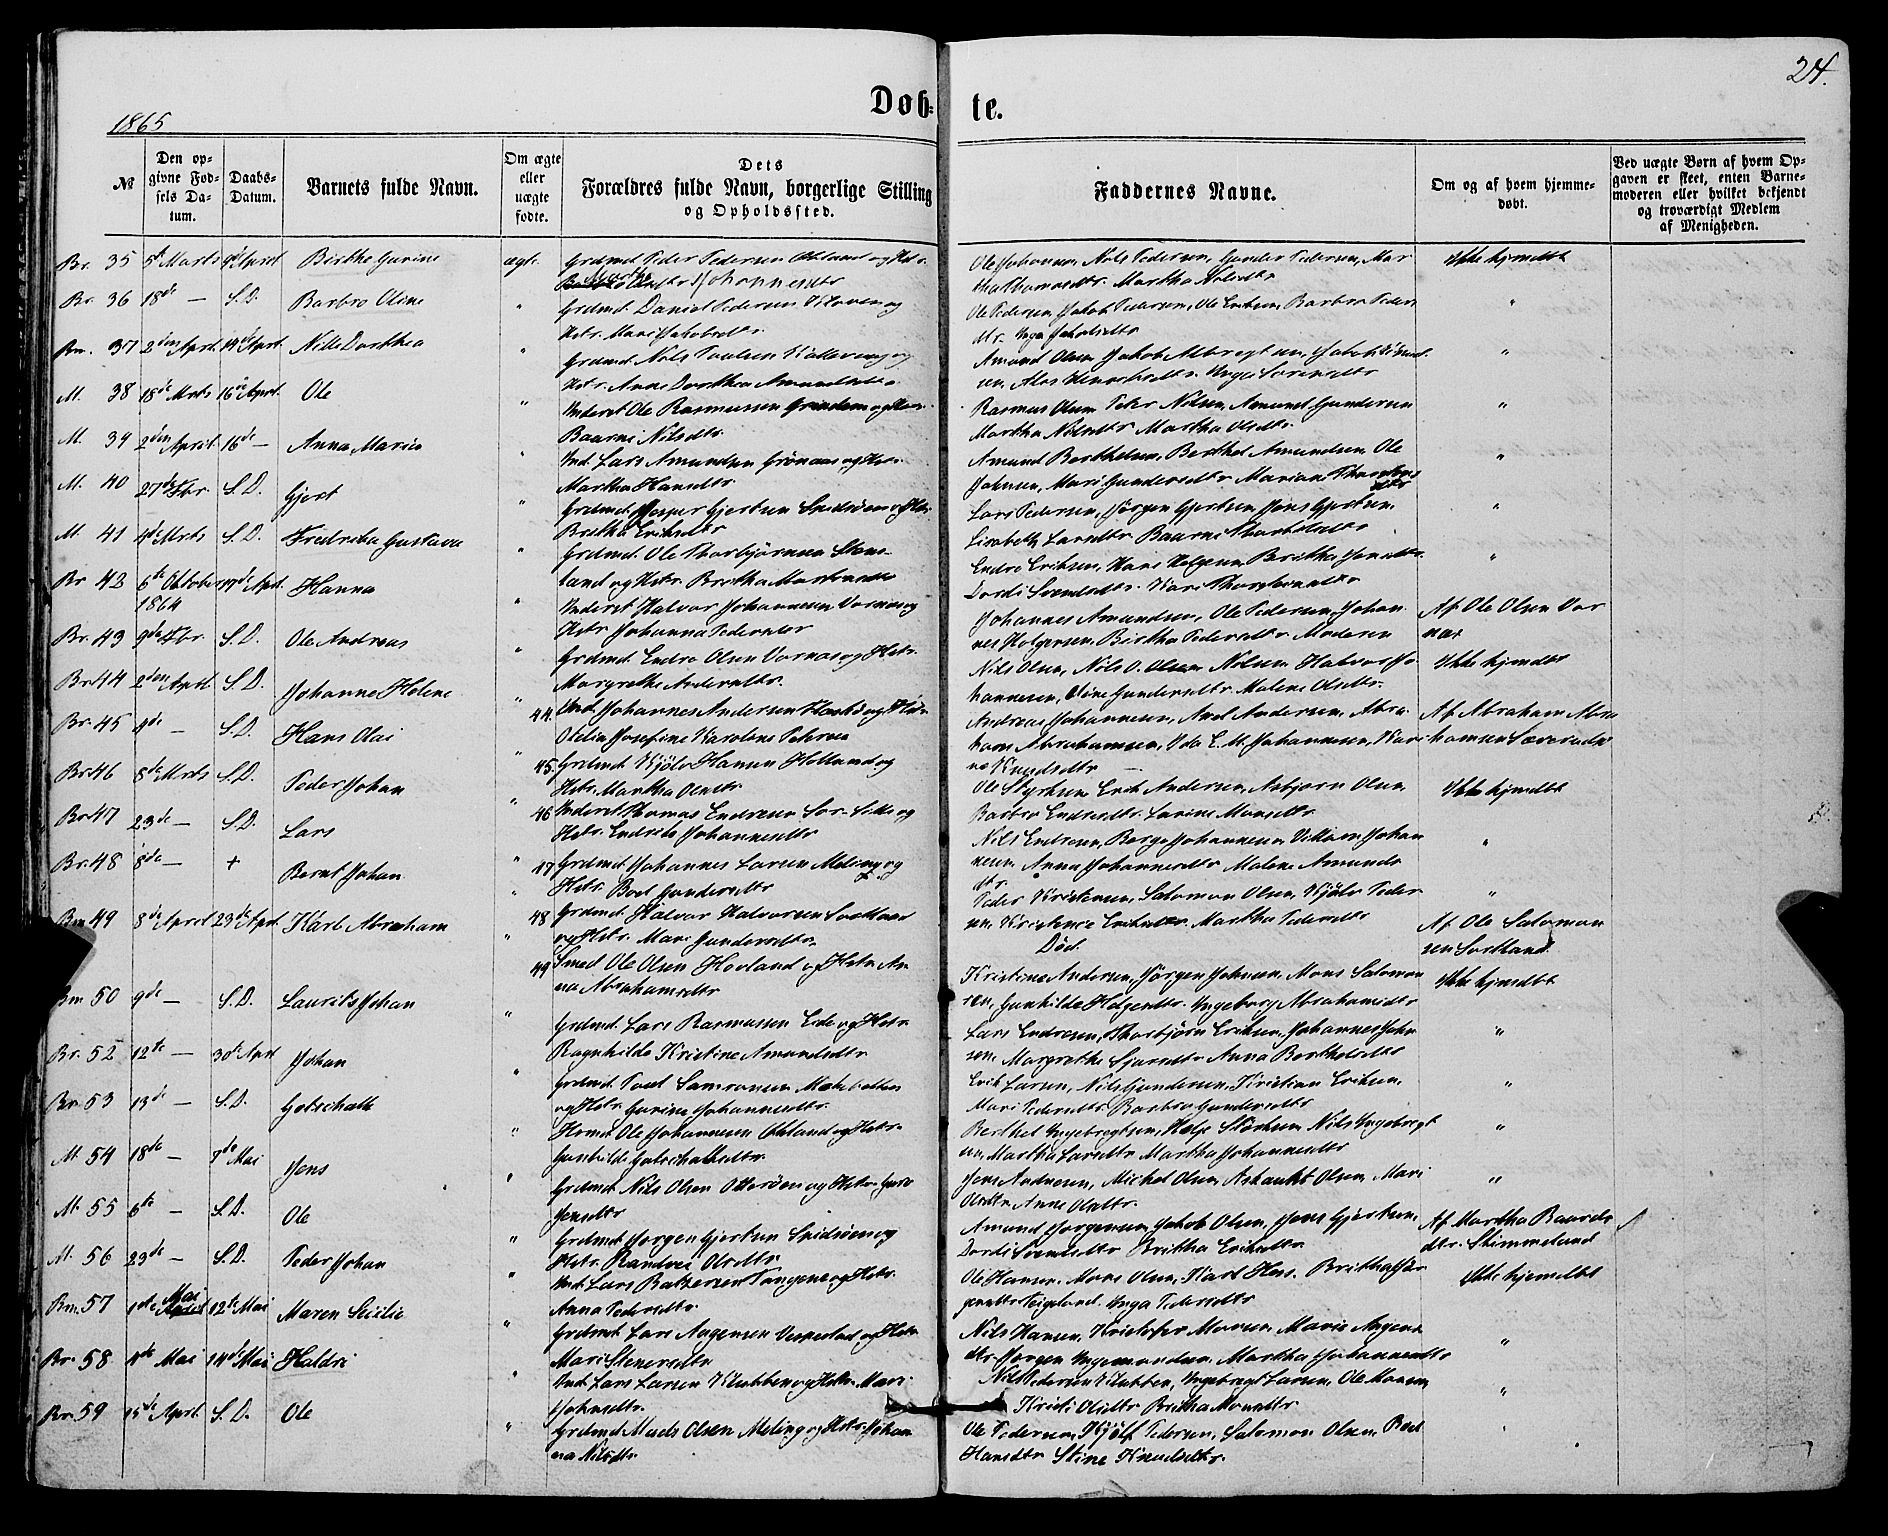 24.
Døb-
te.
1865
№
Den op-
givne Fød-
sels Da-
tum.
Daabs-
Datum.
Barnets fulde Navn.
Om ægte
eller
uægte
fødte.
Dets
Forældres fulde Navn, borgerlige Stilling
og Opholdssted.
Faddernes Navne.
Om og af hvem hjemme-
døbt.
Ved uægte Børn af hvem Op-
gaven er skeet, enten Barne-
moderen eller hvilket bekjendt
og troværdigt Medlem
af Menigheden.
Br. 35 5te Marts Birthe Gurine ægte Grdmd. Peder Pedersen og Hstr.
Johannesdtr
Ole Johannesen, Nils Pedersen, Gunder Pedersen, Mar
tha Thomasdtr. Martha Nilsdtr
Ikke hjemdbt
Br. 36 18de — S.D. Barbro Oline " Grdmd. Daniel Pedersen og
Hstr. Mari Jakobsdtr.
Ole Pedersen, Jakob Pedersen, Ole Eriksen, Barbro Peders
dtr. Inga Jakobsdtr
"
Bm. 37 2den April. 14de April. Nille Dorthea " Grdmd. Nils Poulsen og
Hstr. Anne Dorthea Amundsdtr.
Amund Olsen, Jakob Albregtsen,
"
M. 38 18de Mrts 16de April. Ole " Inderst Ole Rasmussen og
Baarni Nilsdtr.
Rasmus Olsen, Peter Nilsen, Amund Gundersen
Martha Nilsdtr Martha Olsdtr.
"
M. 39 2den April. 16de — Anna Maria " Ind. Lars Amundsen Grönaas og Hstr.
Martha Hansdtr.
Amund Berthelsen, Berthel Amundsen, Ole
Johnsen, Mari Gundersdtr Mariane
dtr
"
M. 40 27de Fbr. S.D. Gjert " Grdmd. Gjertsen og Hstr.
Britha Eriksdtr
Lars Pedersen, Jörgen Gjertsen Jens Gjertsen,
Lisabeth Larsdtr. Baarni
"
M. 41 4de Mrts S.D. Fredrika Gustava " Grdmd. Ole Thorbjörnsen Stens-
land og Hstr. Britha
Endre Eriksen, Hans Helgesen, Britha
Dordi Svendsdtr. Kari Thorsteinsdtr
"
Br 42 6te Oktober 1864 17de Apr. Hanna " Inderst Halvor Johannesen Varnes og
Hstr Johanna Pedersdtr
Johannes Amundsen, Ole Pedersen, Johan
nes Holgersen, Birtha Pedersdtr. Moderen
Af Ole Olsen Var
nes
Br. 43 9de Fbr. S.D. Ole Andreas " Grdmd. Endre Olsen Varnes og Hstr.
Margrethe Andersdtr.
Nils Olsen, Nils O. Olsen Nilsen Halvor Jo
hannesen, Oline Gundersdtr. Malene Olsdtr.
Ikke hjemdbt
Br. 44 2den April S.D. Johanne Helene " 44. Ind. Johannes Andersen og Hstr
Otelia Josefine Karoline Petersen
Andreas Johannesen, Axel Andersen, Abra-
ham Abrahamsen, Ida E. M. Johannesen, Kari
ne Knudsdtr
Af Abraham Abra
hamsen
Br. 45 4de — S.D. Hans Olai " 45. Grdmd. Kjölv Hansen Holland og
Hstr. Martha Olsdtr.
Ole Styrksen, Erik Andersen, Asbjörn Olsen,
Barbro Endresdtr. Larine Monsdtr.
Ikke hjemdbt
Br. 46 8de Mrts S.D. Peder Johan " 46 Inderst Thomas Endresen og
Hstr. Endrika Johannesdtr
Nils Endresen, Börge Johannesen, Villum Johan
nesen, Anna Johannesdtr Malene Amunds
dtr.
"
Br. 47 23de — S.D. Lars " 47 Grdmd. Johannes Larsen Meling og
Hstr. Boel Gundersdtr
Peder Kristensen, Salomon Olsen, Kjölv Peder
sen, Kristense Eriksdtr. Martha Pedersdtr
"
Br. 48 8de — + Bernt Johan " 48 Grdmd. Halvor Halvorsen Sortland
og Hstr. Mari Gundersdtr.
Död.
Af Ole Salomon
sen Sortland
Bm 49 8de April 23de Apr. Karl Abraham " 49 Smed Ole Olsen Hovland og Hstr. An
na Abrahamsdtr
Kristine Andersen, Jörgen Johnsen, Mons Salomon
sen, Gunhilde Helgesdtr. Ingeborg Abrahamsdtr
Ikke hjemdbt
Bm 50 9de — S.D. Laurits Johan " Grdmd. Lars Rasmussen Eide og Hstr.
Ragnhilde Kristine Amundsdtr.
Lars Endresen, Thorbjörn Eriksen, Johannes John
sen, Margrethe Anna Berthelsdtr
"
Br. 52 12te — 30de April Johan " Grdmd. Poul Samsonsen
og Hstr. Gurine Johannesdtr.
Erik Larsen, Nils Gundersen, Kristian Eriksen,
Mari Pedersdtr. Barbro Gundersdtr
"
Br. 53 13de — S.D. Gotschalk " Hsmd. Ole Johannesen og Hstr.
Gunhilde Gotschalksdtr.
Berthel Ingebregtsen, Helje Nils Ingebregt
sen, Martha Larsdtr Martha Johannesdtr
"
M. 54 18de — 7de Mai Jens " Grdmd. Nils Olsen Otteröen og Hstr. Guro
Jensdtr
Jens Andersen, Michel Olsen, Olsen, Mari
Olsdtr. Anne Olsdtr.
"
M. 55 6te — S.D. Ole " Grdmd. Jörgen Gjertsen og
Hstr. Randvei Olsdtr.
Amund Jörgensen, Jakob Olsen, Jens Gjertsen,
Dordi Svendsdtr Britha Eriksdtr.
Af Martha Baards
dtr. Skimmeland
M. 56 23de — S.D. Peder Johan " Ind. Lars Tangene og Hstr.
Anna Pedersdtr.
Ole Hansen, Mons Olsen, Karl Hess, Britha Jör
gensdtr Teigeland. Inga Pedersdtr
Ikke hjemdbt
Bm. 57 1de Mai 12te Mai Maren Sicilie " Grdmd. Lars Aagensen Vespestad og Hstr.
Mari Stenersdtr
Nils Hansen, Kristofer Monsen, Marie Aagens
dtr. Jörgen Ingemundsen, Martha Johannesdtr
"
Br. 58 4de Mai 14de Mai Haldri " Ind. Lars Larsen Klubben og Hstr. Mari
Johnsdtr.
Nils Pedersen Klubben, Ingebregt Larsen, Ole Monsen
Kristi Olsdtr Britha Monsdtr.
"
Br. 59 15de April. S.D. Ole " Grdmd. Mads Olsen Meling og Hstr. Johan
na Nilsdtr.
Ole Pedersen, Kjölf Pedersen, Salomon Olsen, Boel
Hansdtr Stine Knudsdtr.